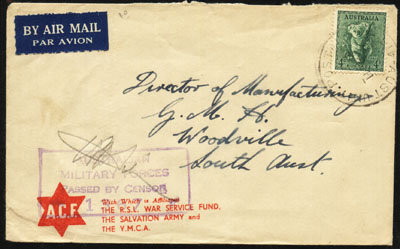 BY AIR MAIL
PAR AVION
AUSTRALIA
Director of Manufacturing
G. M. H.
Woodville
South Aust.
MILITARY FORCES
PASSED BY CENSOR
1
A.C.F.
With Which is Affiliated
THE R.S.L. WAR SERVICE FUND,
THE SALVATION ARMY and
THE Y.M.C.A.